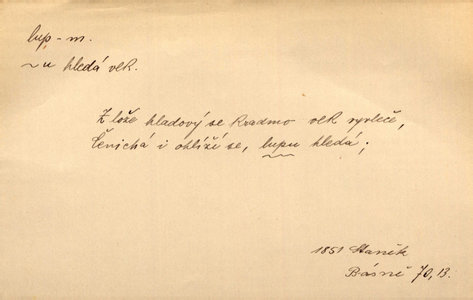 lup - m.
~u hledá vlk.
Z lože hladový se kradmo vlk vyvleče,
Čenichá i ohlíží se, lupu hledá;
1851 Staněk
Básně 70, 13.